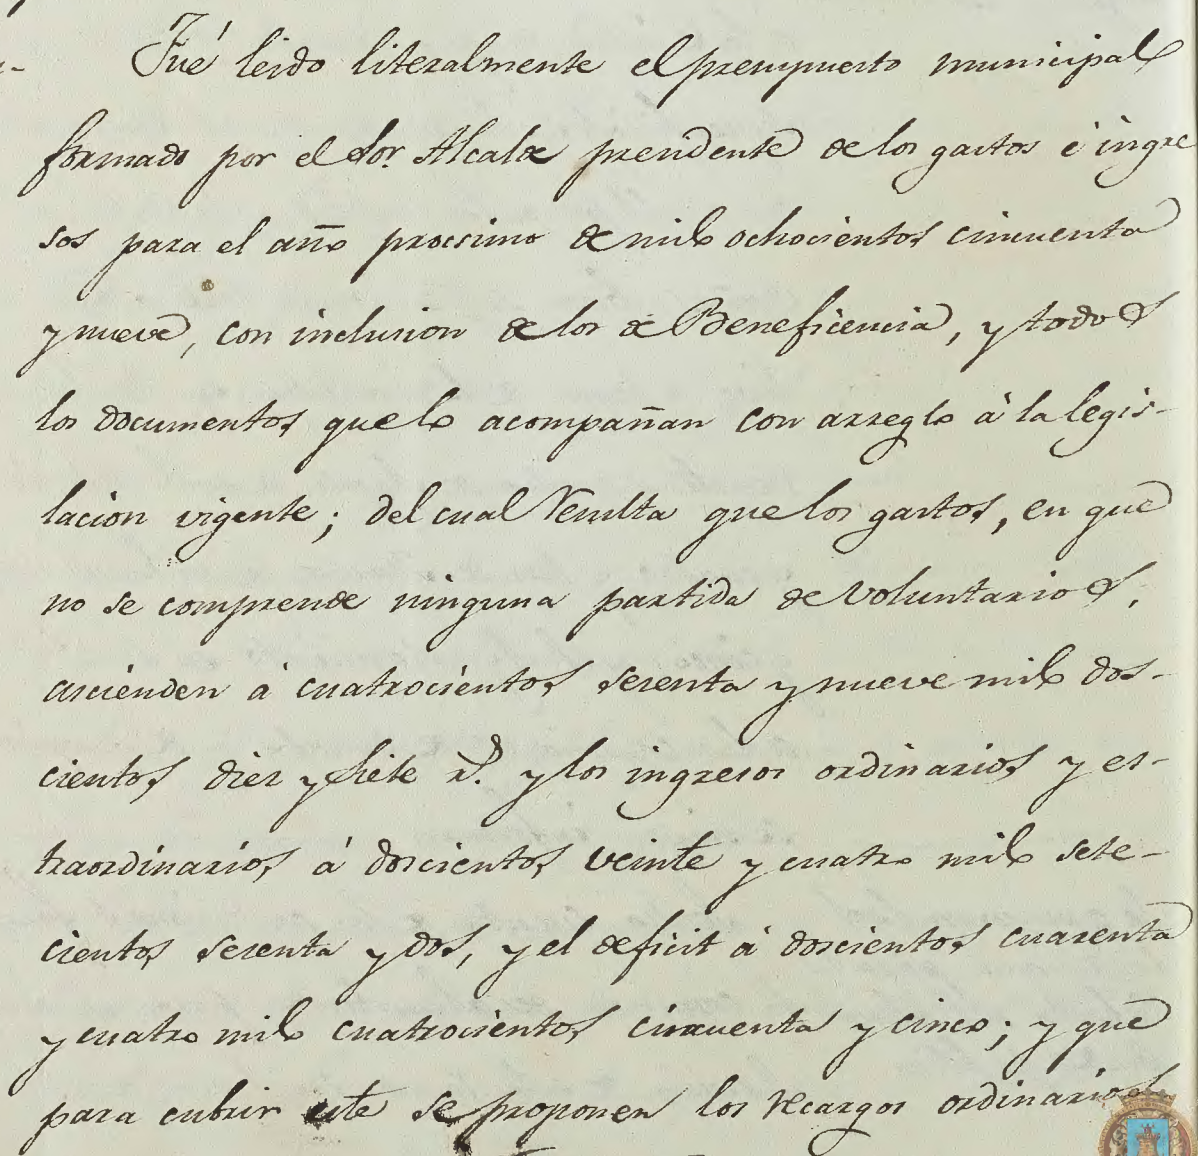 Fué leido literalmente el presupuesto municipal
formado por el Sor. Alcalde presidente de los gastos é ingre
sos para el año procsimo de mil ochocientos cincuenta
y nueve, con inclusion de los de Beneficencia, y todos
los documentos que lo acompañan con arreglo á la legis-
lacion vigente; del cual resulta que los gastos, en que
no se comprende ninguna partida de voluntarios,
ascienden á cuatrocientos sesenta y nueve mil dos-
cientos diez y siete rs. y los ingresos ordinarios y es-
traordinarios, á doscientos veinte y cuatro mil sete-
cientos sesenta y dos, y el deficit á doscientos cuarenta
y cuatro mil cuatrocientos cincuenta y cinco; y que
para cubrir este se proponen los recargos ordinarios